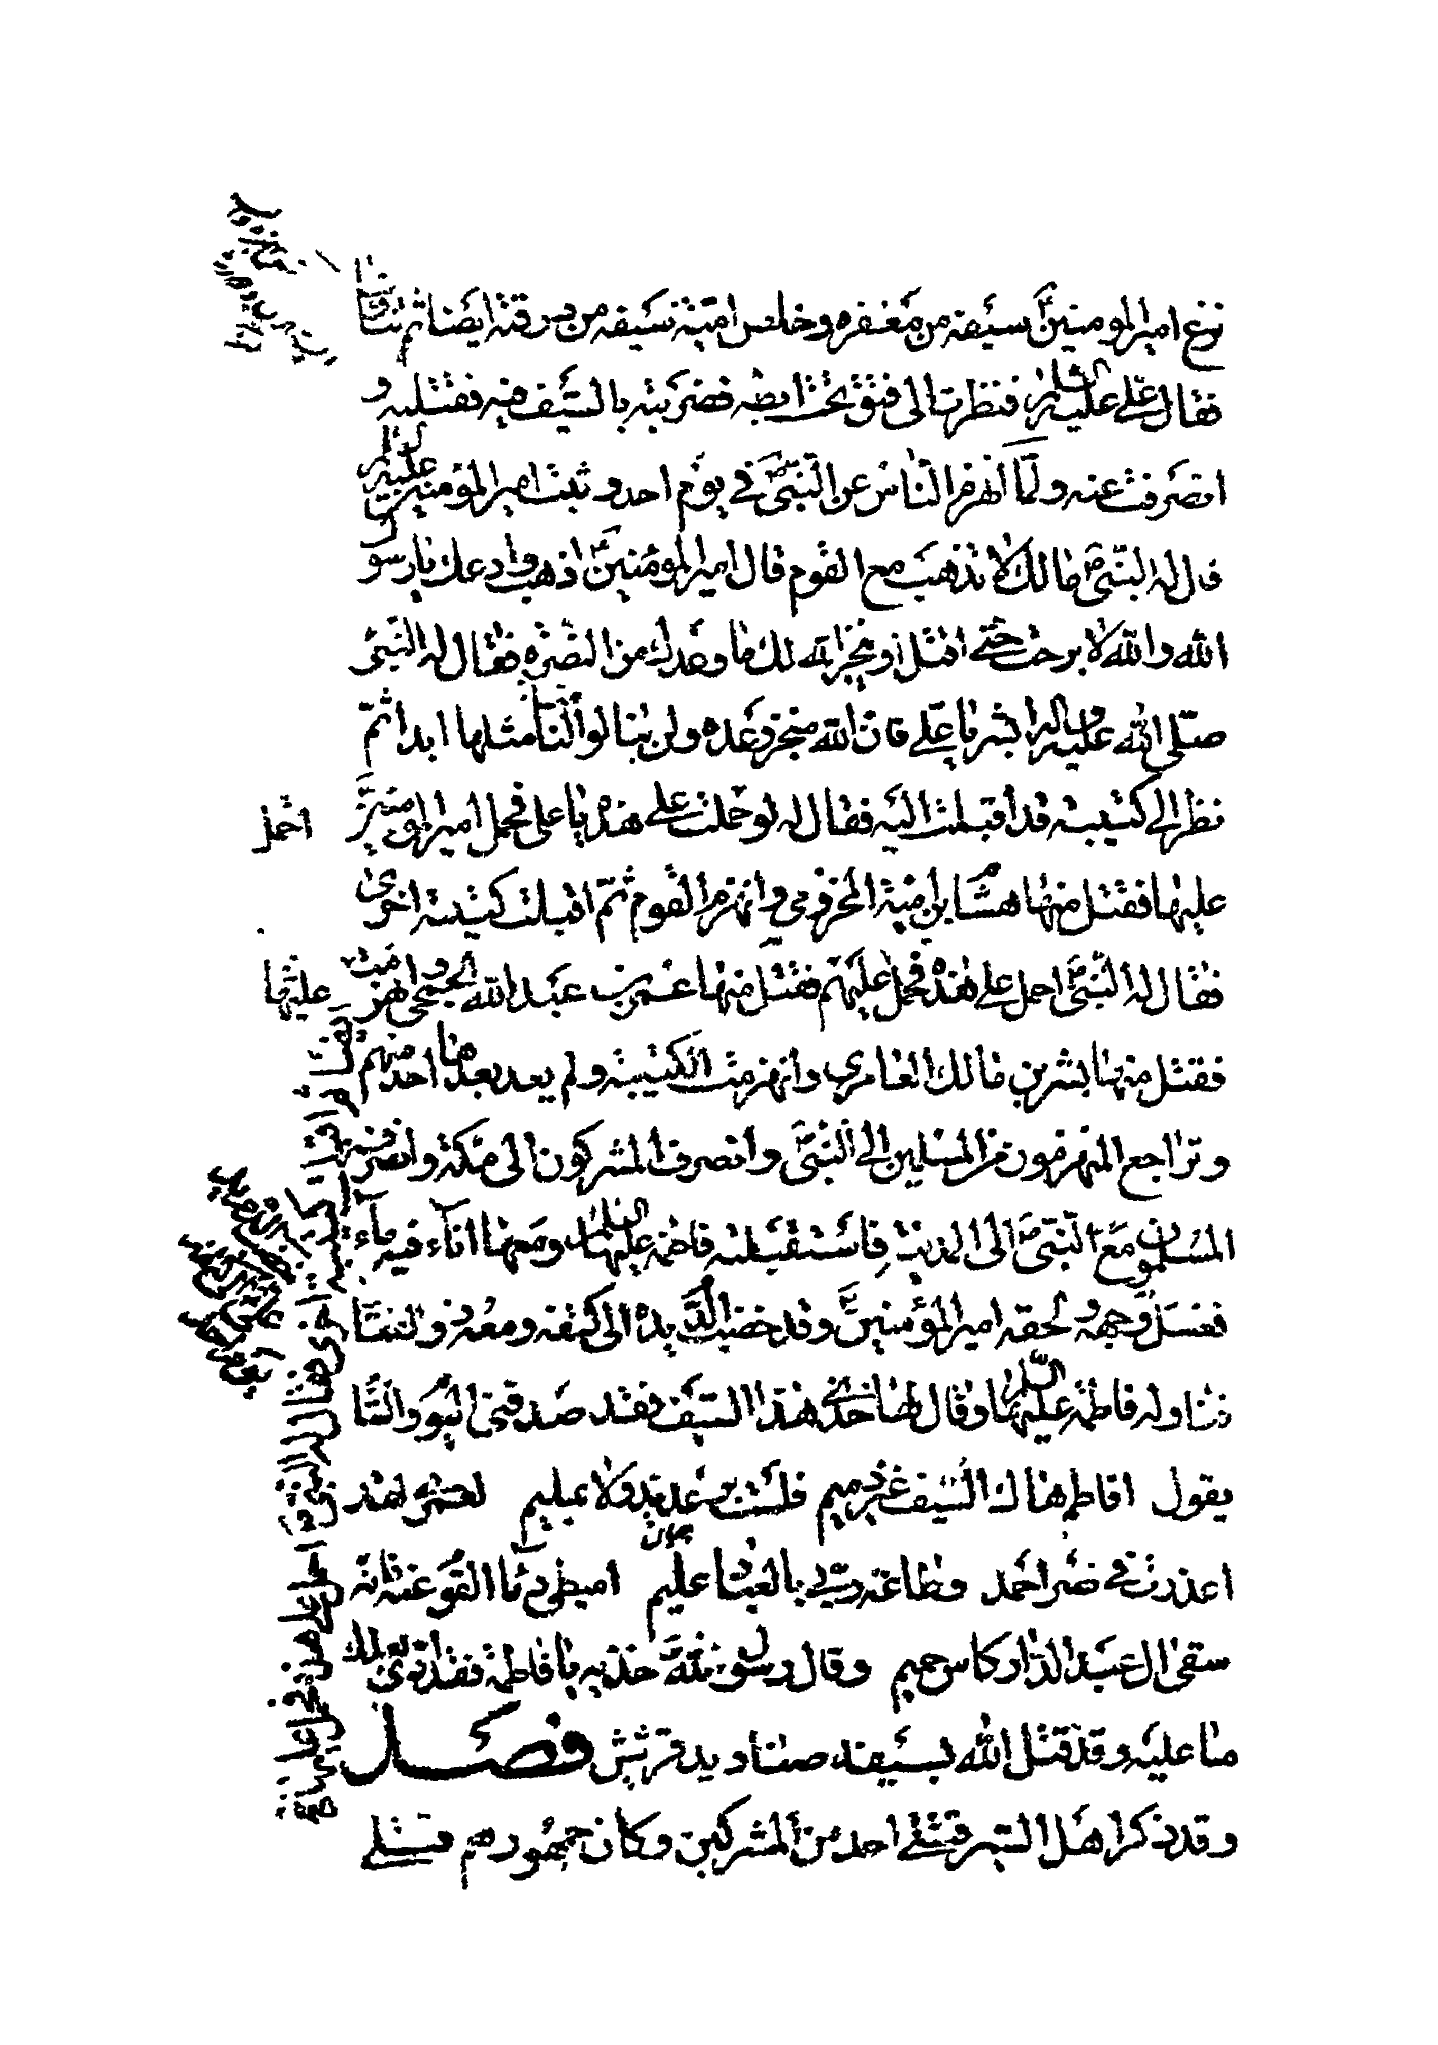 نزع امير المومنين سيفه من مغفره وخلص امية سيفه من درقته ايضا ثم تناوشا
فقال علي عليه السلام فنظرت الى فتق تحت ابطه فضربته بالسيف فيه فقتلته و
انصرفت عنه ولما انهزم الناس عن النبي في يوم احد وثبت امير المؤمنين عليه السلام
قال له النبي ما لك لا تذهب مع القوم قال امير المؤمنين اذهب وادعك يا رسول
الله والله لا برحت حتى اقتل او ينجز الله لك ما وعدك من النصرة فقال له النبي
صلى الله عليه واله ابشر يا علي فان الله منجز وعده ولن ينالوا منا مثلها ابدا ثم
نظر الى كتيبة قد اقبلت اليه فقال له لو حملت على هذه يا علي فحمل امير المومنين
احمل
عليها فقتل منها هشام بن امية المخزومي وانهزم القوم ثم اقبلت كتيبة اخرى
فقال له النبي احمل على هذه فحمل عليهم فقتل منها عمرو بن عبد الله الجمحي وانهزمت
عليها
فقتل منها بشر بن مالك العامري وانهزمت الكتيبة ولم يعد بعدها احد منهم
وتراجع المنهزمون من المسلمين الى النبي وانصرف المشركون الى مكة وانصرف
المسلمون مع النبي الى المدينة فاستقبلته فاطمة عليها السلام ومعها اناء فيه ماء
فغسل وجهه ولحقه امير المؤمنين وقد خضب الدم يده الى كتفه ومعه ذو الفقار
فناوله فاطمة عليها السلام وقال لها خذي هذا السيف فقد صدقني اليوم وانشا
يقول افاطم هاك السيف غير ذميم فلست برعديد ولا بمليم لعمري لقد
اعذرت في نصر احمد وطاعة رب بالعباد عليم اميطي دماء القوم عنه فانه
سقى ال عبد الدار كاس حميم وقال رسول الله خذيه يا فاطمة فقد ادى بعلك
ما عليه وقد قتل الله بسيفه صناديد قريش فصل
وقد ذكر اهل السير قتلى احد من المشركين وكان جمهورهم قتلى